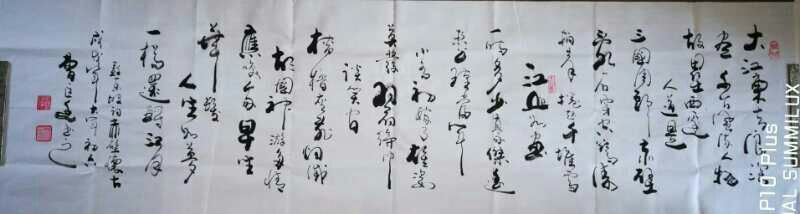 大江東去浪淘
盡千古風流人物
故壘西邊
人道是
三國周郎赤壁
亂石穿空驚濤
拍岸捲起千堆雪
江山如畫
一時多少豪傑遙
想公瑾當年
小喬初嫁了雄姿
英發羽扇綸巾
談笑間
檣櫓灰飛烟滅
故國神遊多情
應笑我早生
華髮
人生如夢
一樽還酹江月
蘇東坡詞赤壁懷古
戊戌年 初六
P10 Plus
AL SUMMILUX